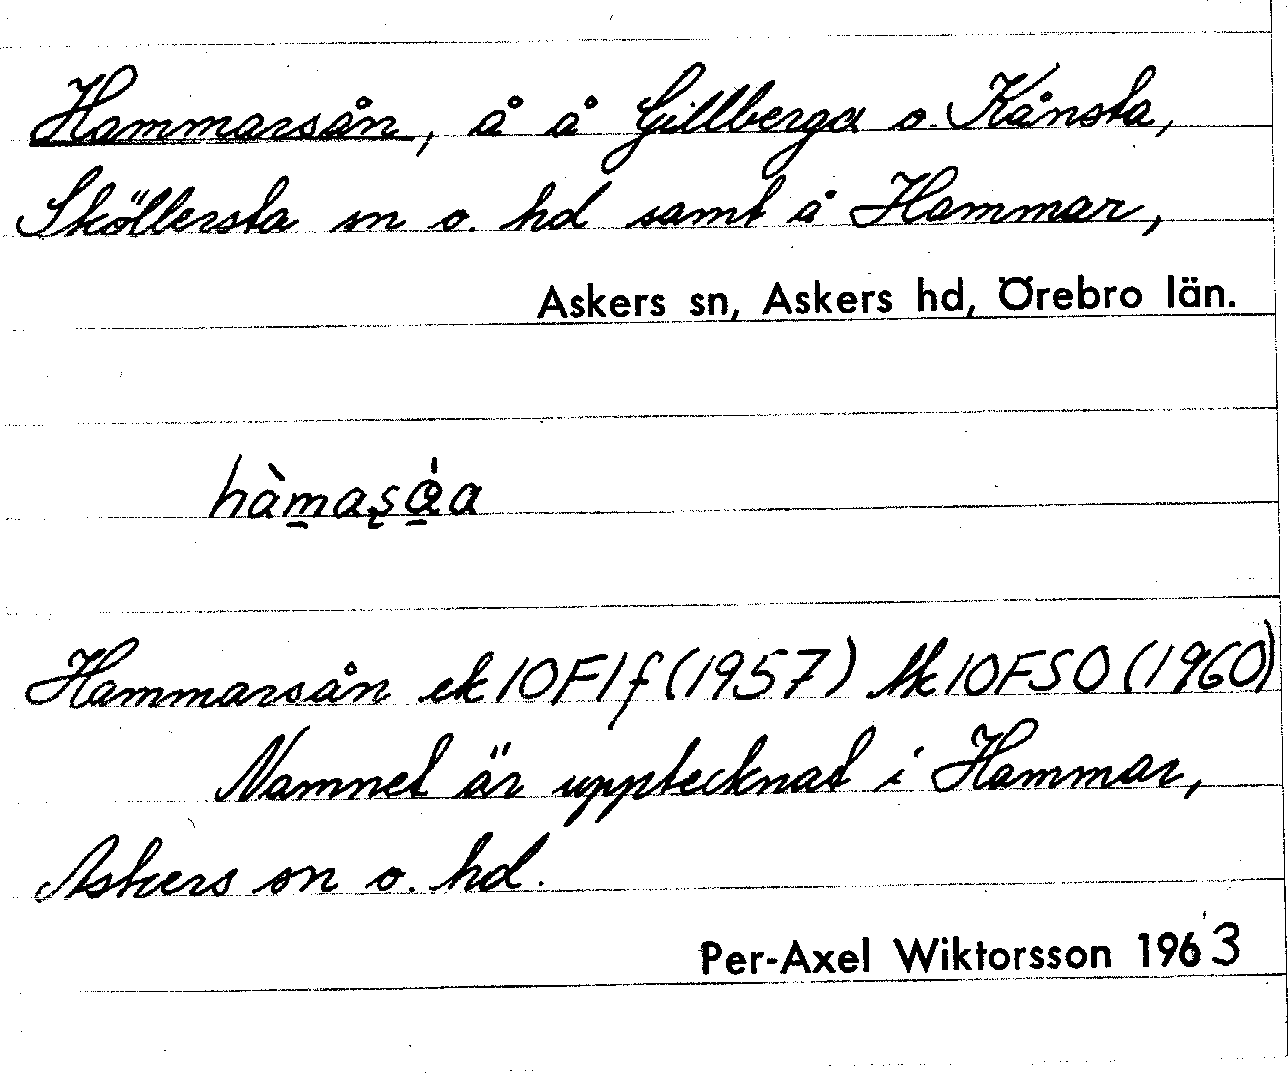 Hammarsån, å å Gillberga o. Kånsta,
Sköllersta sn o. hd samt å Hammar,
Askers sn, Askers hd, Örebro län.
Hammarsån ek 10F1f (1957) tk 10FSO (1960)
Namnet är upptecknat i Hammar,
Askers sn o. hd.
Per-Axel Wiktorsson 1963